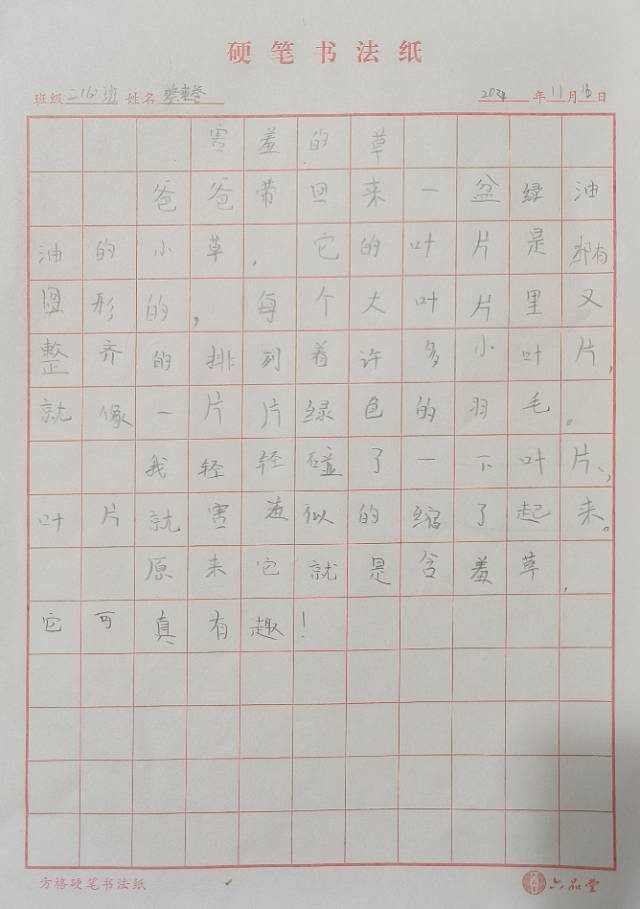 硬笔书法纸
班级 二16班 姓名 2024 年 11 月 日
害羞的草
爸爸带回来一盆绿油
油的小草，它的叶片是椭
圆形的，每个大叶片里又
整齐的排列着许多小叶片，
就像一片片绿色的羽毛。
我轻轻碰了一下叶片，
叶片就害羞似的缩了起来。
原来它就是含羞草，
它可真有趣！
方格硬笔书法纸 六品堂